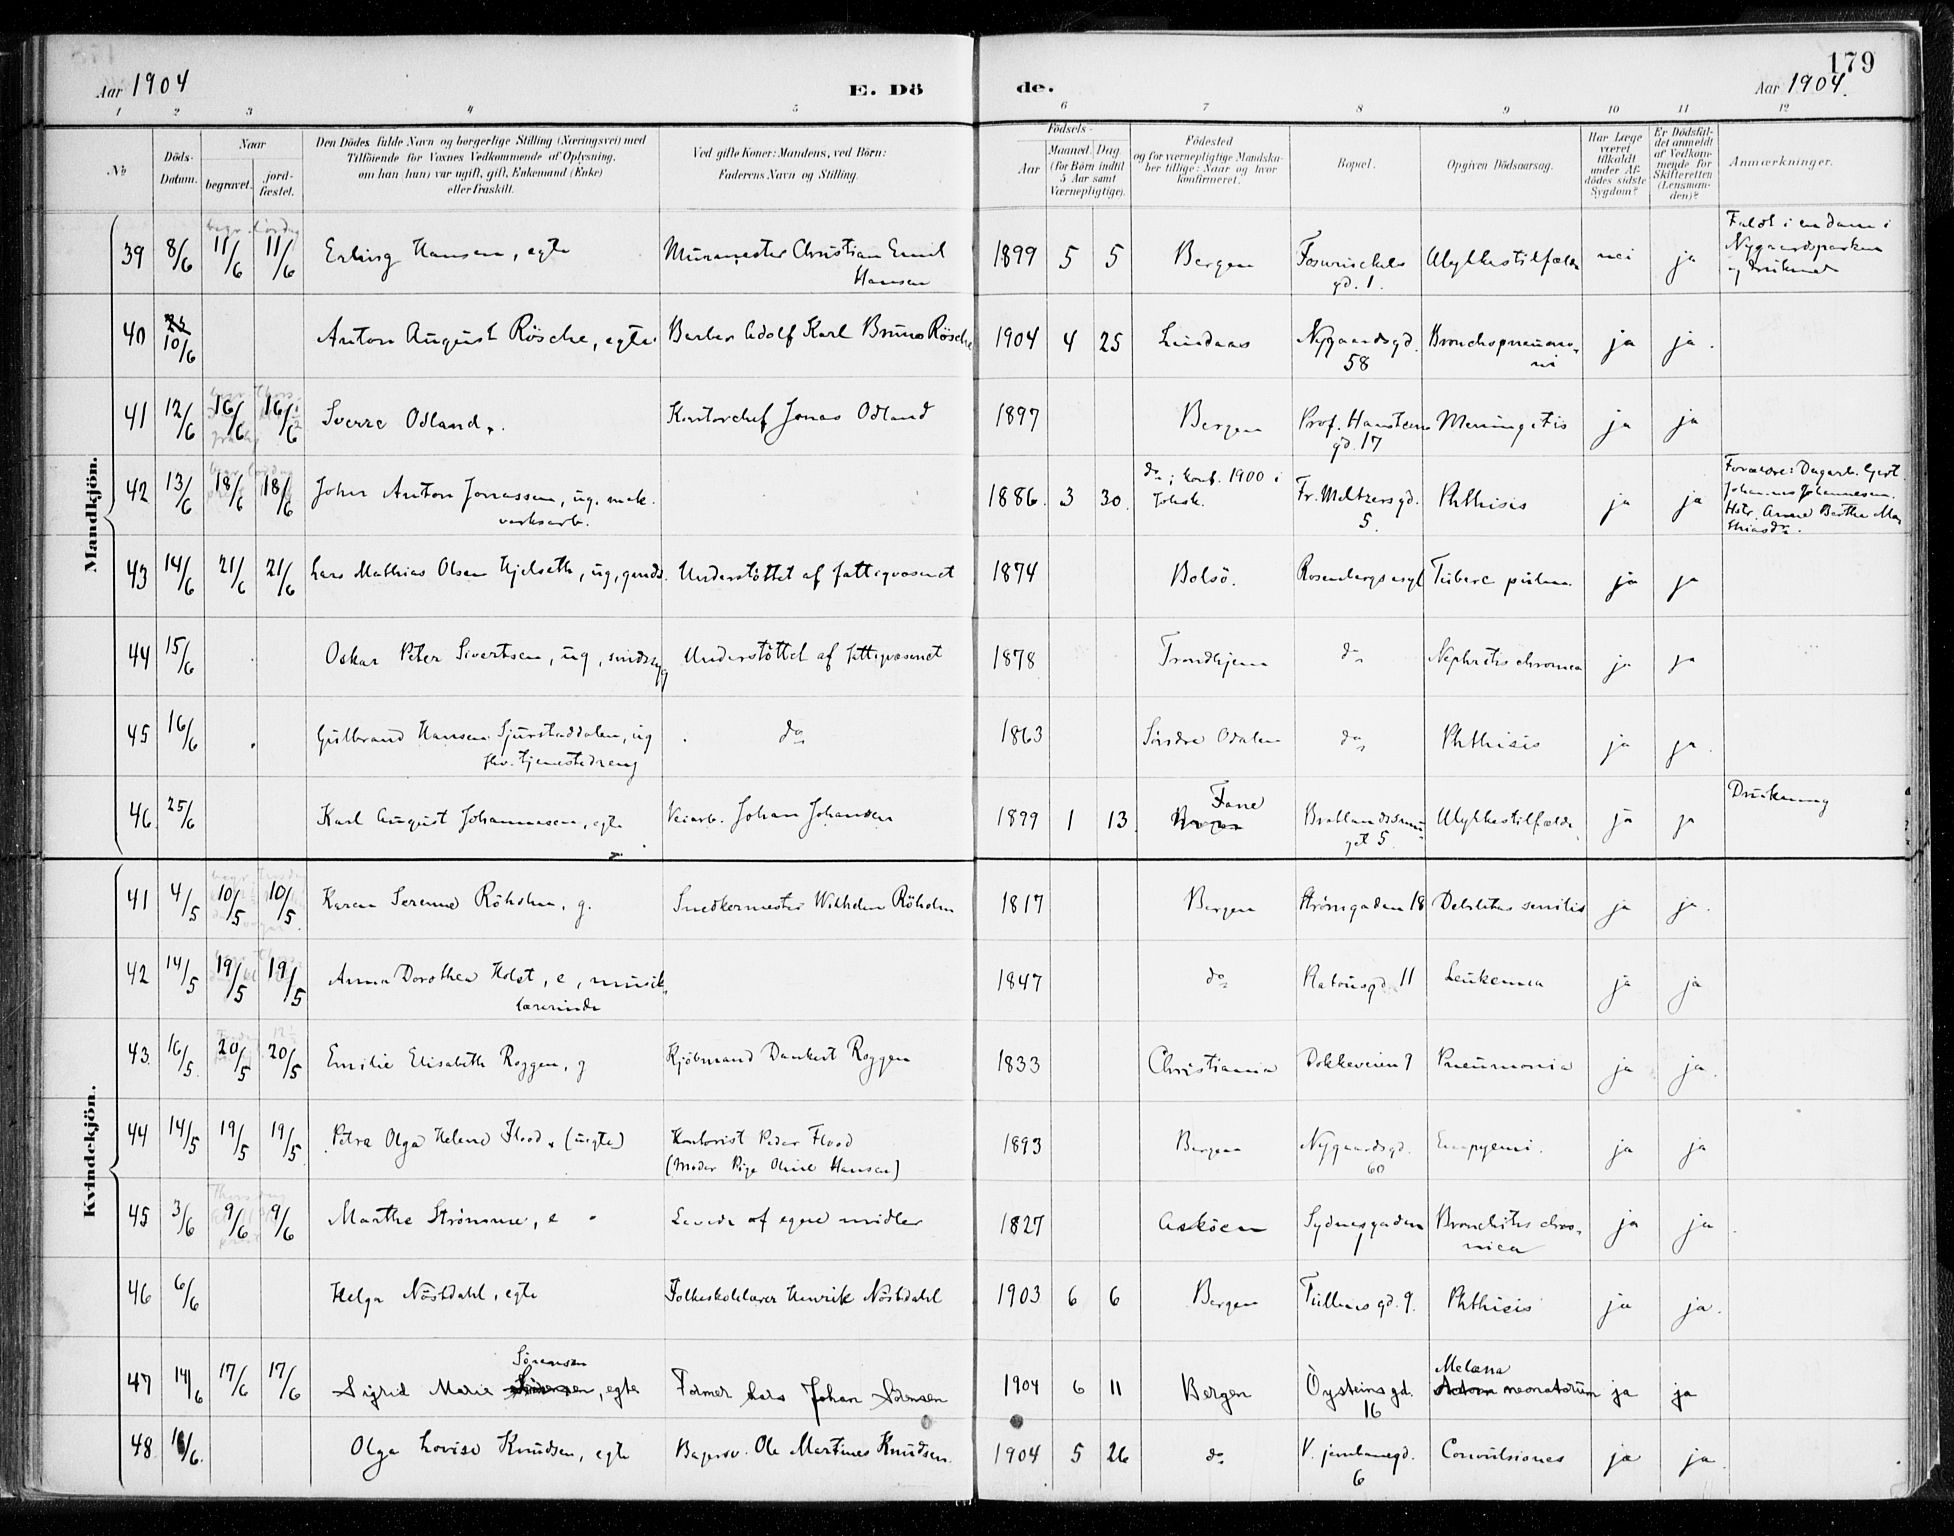 179
Aar 1904
E. Dö
de.
Aar 1904.
1 2 3 4 5 6 7 8 9 10 11 12
No
Döds-
Datum.
Naar
begravet.
jord-
fæstet.
Den Dödes fulde Navn og borgerlige Stilling (Næringsvei) med
Tilföiende for Voxnes Vedkommende af Oplysning,
om han (hun) var ugift, gift, Enkemand (Enke)
eller fraskilt.
Ved gifte Koner: Mandens, ved Börn:
Faderens Navn og Stilling.
Födsels-
Aar
Maaned. Dag.
(for Börn indtil
5 Aar samt
Værnepligtige).
Födested
og for værnepligtige Mandska-
ber tillige: Naar og hvor
konfirmeret.
Bopæl.
Opgiven Dödsaarsag.
Har Læge
været
tilkaldt
under Af-
dödes sidste
Sygdom?
Er Dödsfal-
det anmeldt
af Vedkom-
mende for
Skifteretten
(Lensman-
den)?
Anmærkninger.
Mandkjön.
39 8/6 11/6 11/6 Erling Hansen, egte Murmester Christian Emil Hansen 1899 5 5 Bergen gd. 1. Ulykkestilfælde nei ja Faldt i en dam i Nygaardsparken og druknet
40 10/6 Anton August Rösche, egte Barber Adolf Karl Bruno Rösche 1904 4 25 Lindaas Nygaardsgd. 58 Bronchopneumoni ja ja.
41 12/6 16/6 16/6 Sverre Odland. Kontorchef Jonas Odland 1897 Bergen Prof. Hansteens gd. 17 Meningitis ja ja
42 13/6 18/6 18/6 Johan Anton Jonassen, ug. mek. verksarb. 1886. 3 30. do; konf. 1900 i Johsk. Fr. Meltzersgd. 5. Phthisis ja ja Forældre: Dagarb. Gert Johannes Johannesen. Hstr. Anne Berthe Mathiasdr.
43 14/6 21/6 21/6 Lars Mathias Olsen Hjelseth, ug, Understöttet af fattigvæsenet 1874 Bolsö. Rosenbergsasyl Tuberc pulm. ja ja
44 15/6 Oskar Peter Sivertsen, ug, sindssyg Understöttet af fattigvæsenet 1878 Trondhjem do Nephritis chronica ja ja
45 16/6 Gulbrand Hansen Sjurstaddalen, ug fhv. tjenestedreng do 1863 Söndre Odalen do Phthisis ja ja.
46. 25/6 Karl August Johannesen, egte Veiarb. Johan Johansen 1899 1 13. Fane Bergen 5. Ulykkestilfælde. ja ja Drukning
Kvindekjön.
41 4/5 10/5 10/5 Karen Serenne Röholm, g. Snedkermester Wilhelm Röholm 1817 Bergen Strömgaden 18 Debilitas senilis ja ja.
42 14/5 19/5 19/5 Anna Dorothea Holst, e, musiklærerinde 1847 do Platousgd. 11 Leukemia ja ja
43. 16/5. 20/5 20/5 Emilie Elisabeth Roggen, g Kjöbmand Dankert Roggen 1833 Christiania Dokkeveien 7 Pneumonia ja ja.
44 14/5 19/5 19/5. Petra Olga Helene Flood. (uegte) Kontorist Peder Flood (Moder Pige Oline Hansen) 1893 Bergen Nygaardsgd. 60 Empyemi. ja ja
45 3/6 9/6 9/6 Marthe Strömme, e Levede af egne midler 1827 Asköen Sydnesgaden Bronchitis chronica ja ja
46 6/6 Helga Nöstdahl, egte Folkeskolelærer Henrik Nöstdahl 1903 6 6 Bergen Tullinsgd. 9. Phthisis ja ja.
47 14/6 17/6 17/6 Sigrid Marie Sörensen, egte Former Lars Johan Sörensen 1904 6 11 Bergen Öysteinsgd. 16 Melæna neonatorum ja ja
48 /6. Olga Lovise Knudsen, egte Bagersv. Ole Martinus Knudsen. 1904 5 26 do V. jernbanegd. 6 Convulsiones ja ja.